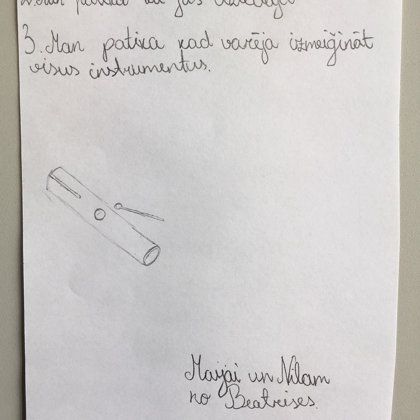 patika ka jūs
3. Man patika kad varēja izmēiģināt
visus instrumentus.
Maijai un Nilam
no Beatrises.